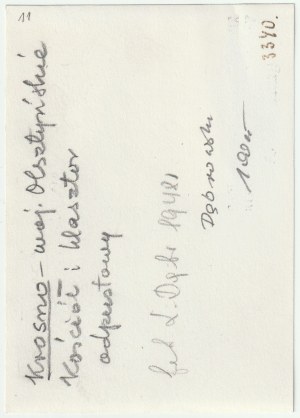 11
3340.
Krosno - woj. Olsztyńskie
Kościół i klasztor
odpustowy
fot. L. Dąbr. 1948r
Dąbrowski